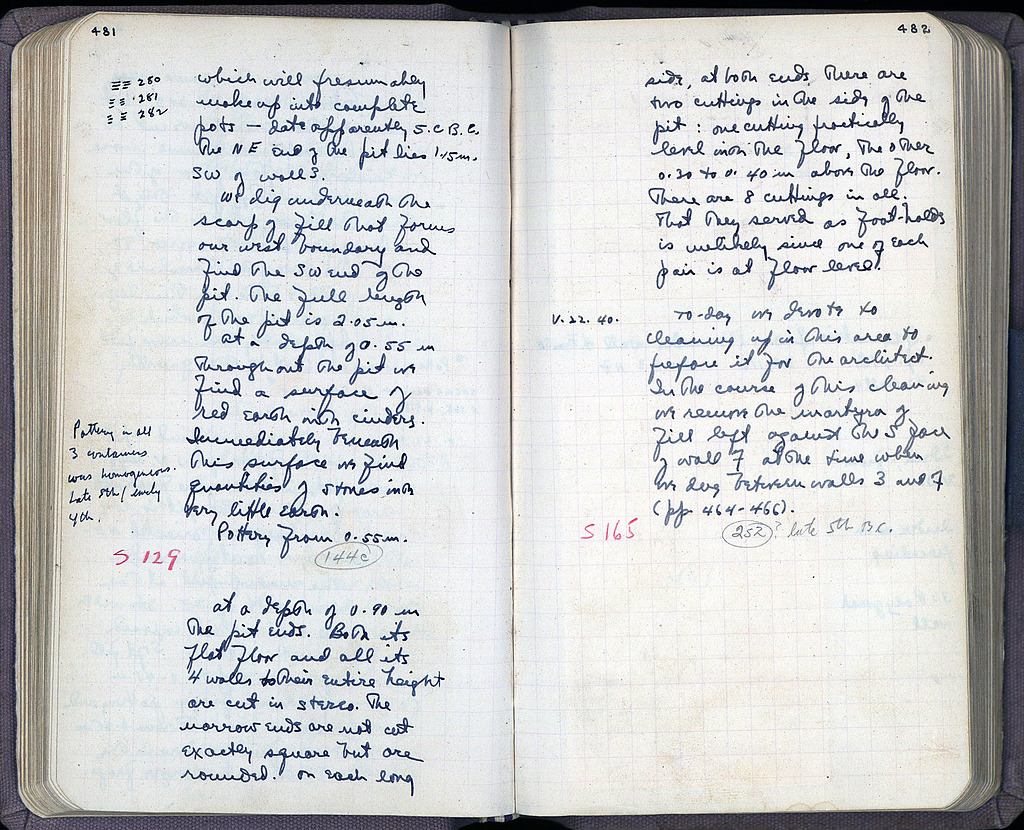 481
≡≡ 280
= = 281
= = 282
which will presumably
make up into complete
pots — date apparently 5. C B.C.
The NE end of the pit lies 1.15 m.
SW of wall 3.
We dig underneath the
scarp of fill that forms
our west boundary and
find the SW end of the
pit. The full length
of the pit is 2.05 m.
At a depth of 0.55 m
throughout the pit we
find a surface of
red earth with cinders.
Immediately beneath
this surface we find
quantities of stones with
very little earth.
Pottery from 0.55 m.
Pottery in all
3 containers
was homogenous.
Late 5th / early
4th.
S 129
144c
at a depth of 0.90 m
the pit ends. Both its
flat floor and all its
4 walls to their entire height
are cut in stereo. The
narrow ends are not cut
exactly square but are
rounded. On each long
482
side, at both ends there are
two cuttings in the side of the
pit : one cutting practically
level with the floor, the other
0.30 to 0.40 m above the floor.
There are 8 cuttings in all.
That they served as foot-holds
is unlikely since one of each
pair is at floor level.
V. 22. 40.
To-day we devote to
cleaning up in this area to
prepare it for the architect.
In the course of this cleaning
we remove the martyra of
fill left against the S face
of wall 7 at the time when
we dug between walls 3 and 7
(pp 464-466).
S 165
252 ? late 5th B.C.